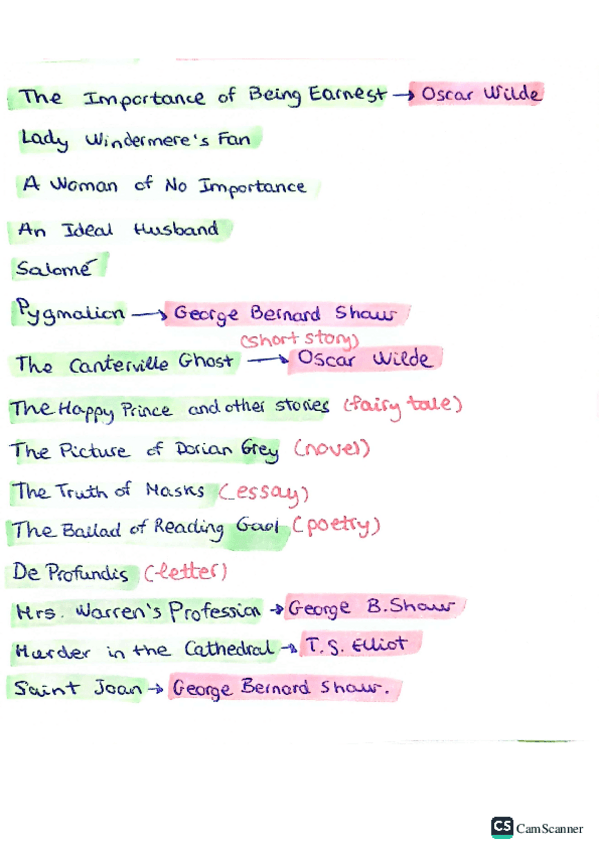 The Importance of Being Earnest → Oscar Wilde
Lady Windermere's Fan
A Woman of No Importance
An Ideal Husband
Salomé
Pygmalion → George Bernard Shaw
(short story)
The Canterville Ghost → Oscar Wilde
The Happy Prince and other stories (fairy tale)
The Picture of Dorian Grey (novel)
The Truth of Masks (essay)
The Ballad of Reading Gaol (poetry)
De Profundis (letter)
Mrs. Warren's Profession → George B. Shaw
Murder in the Cathedral → T.S. Elliot
Saint Joan → George Bernard Shaw.
CS CamScanner